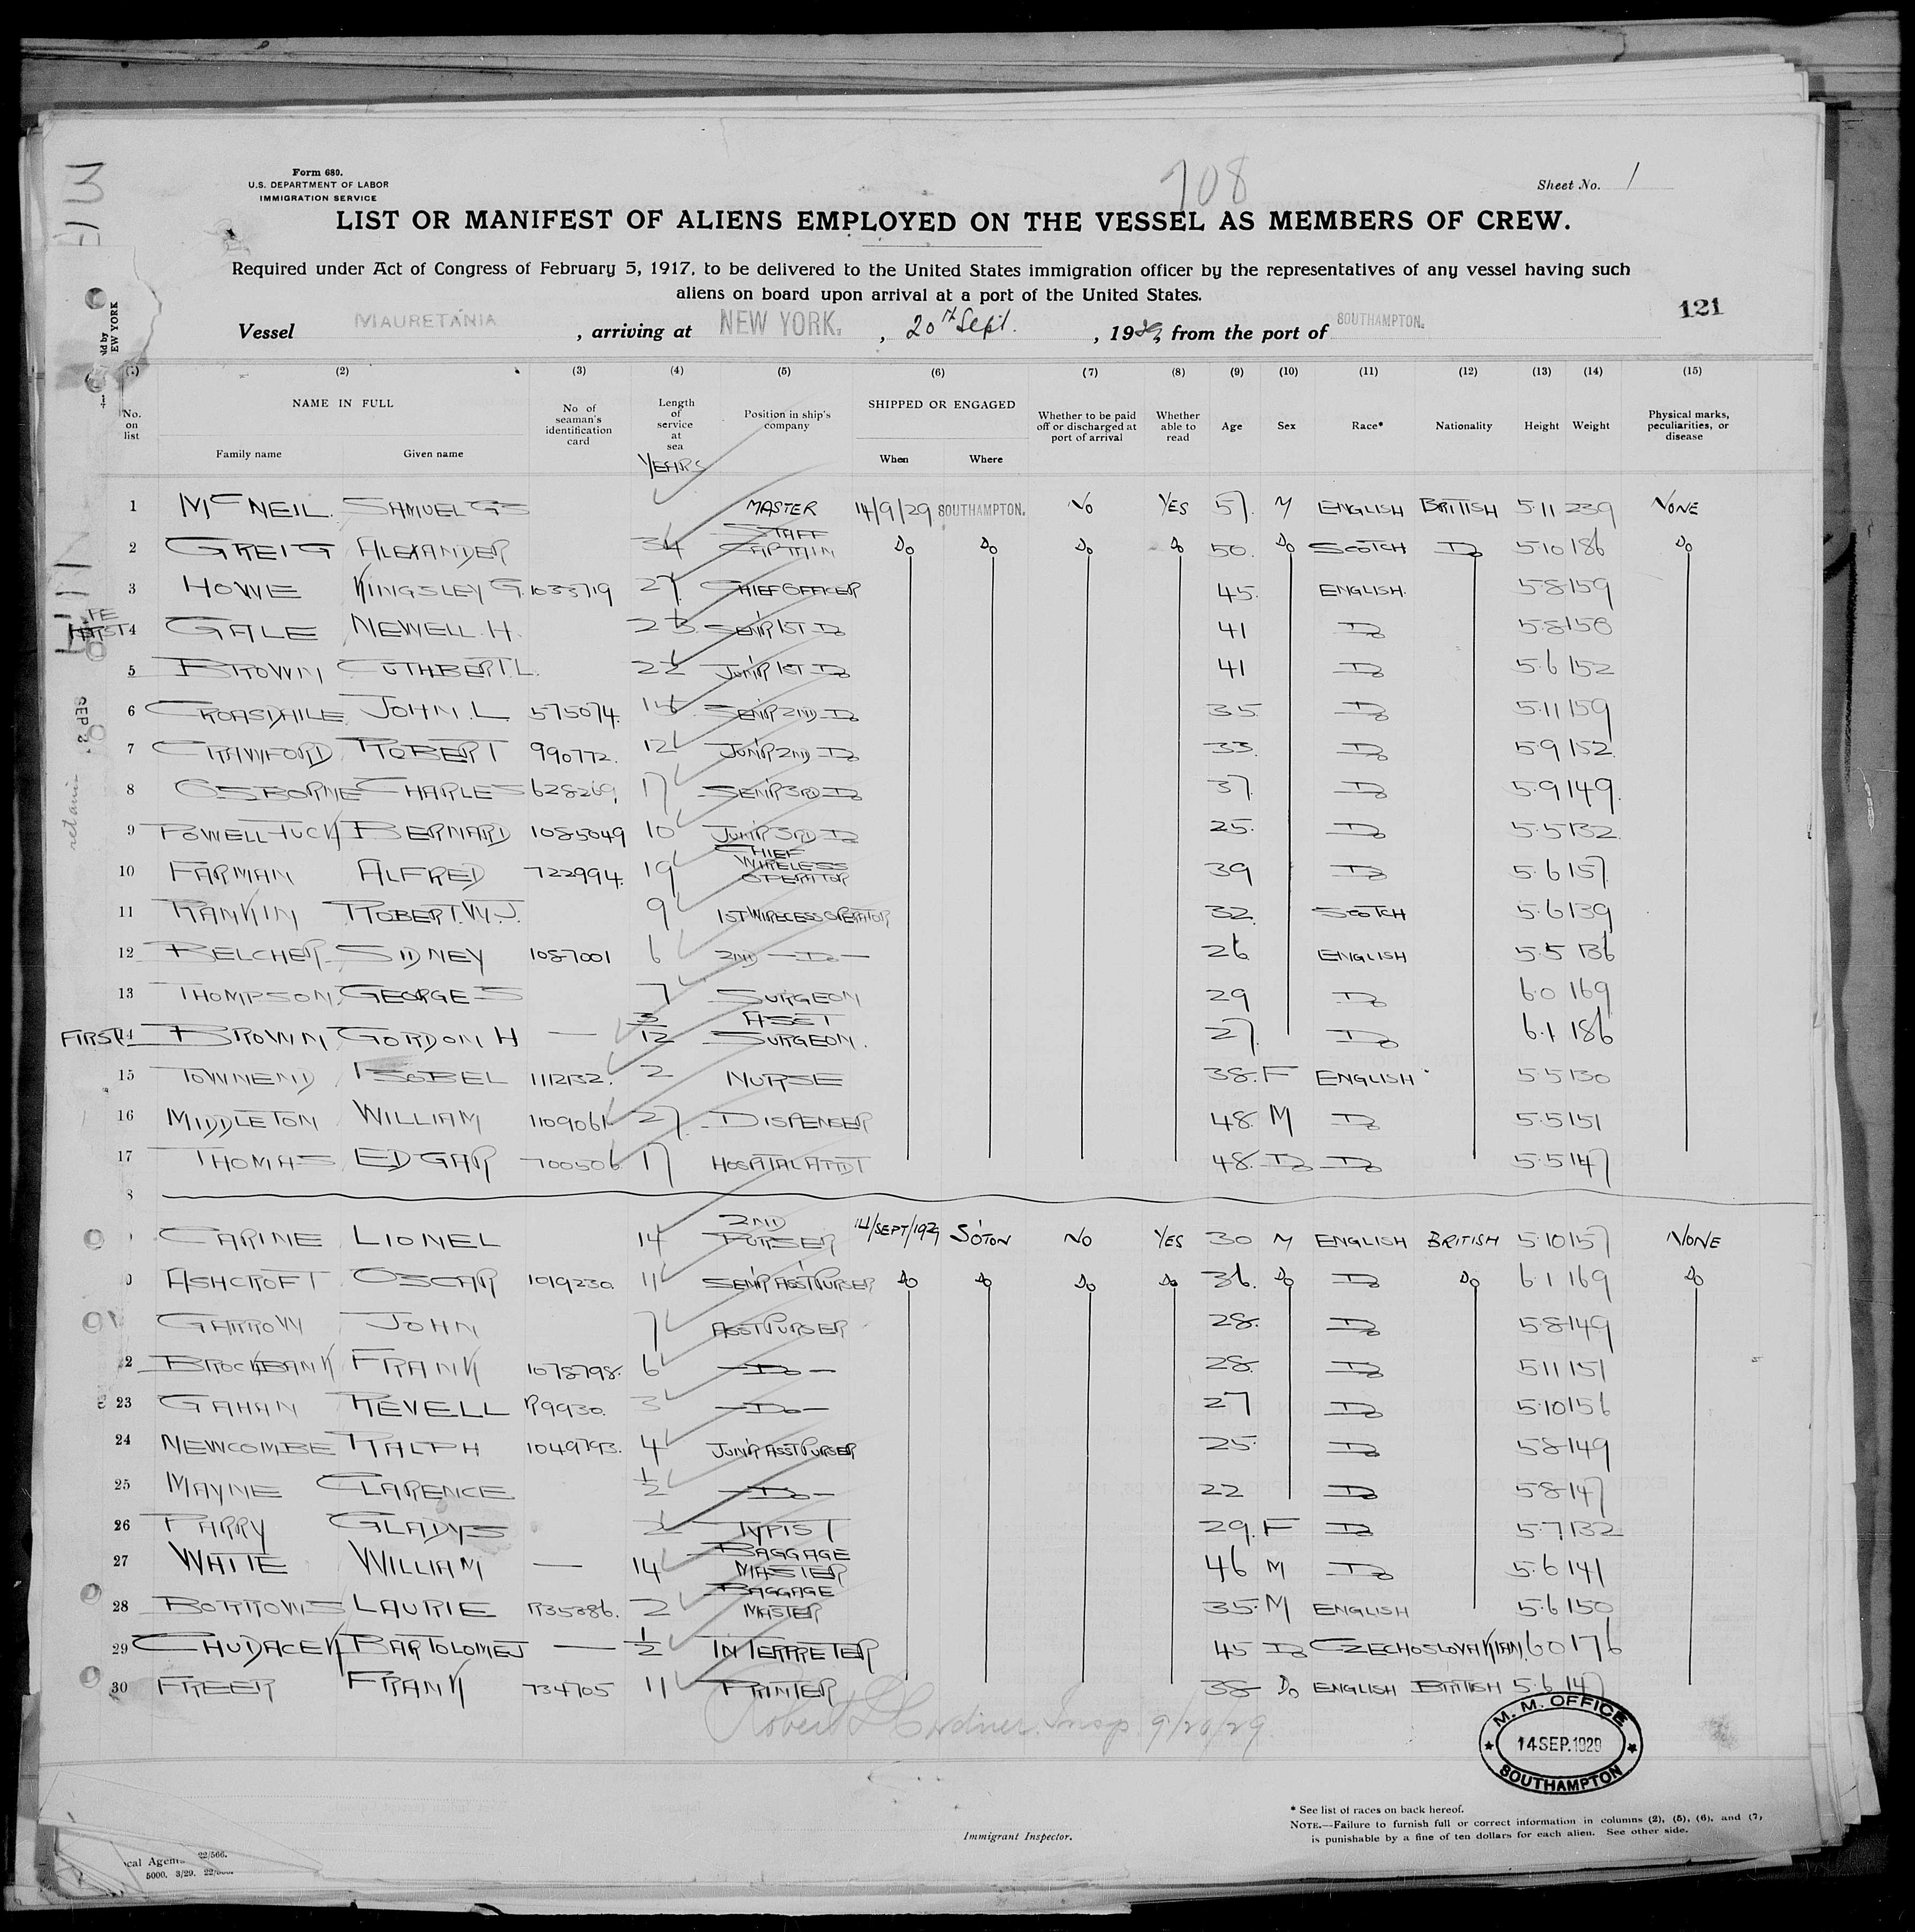 Form 680.
U.S. DEPARTMENT OF LABOR
IMMIGRATION SERVICE
108
Sheet No. 1
LIST OR MANIFEST OF ALIENS EMPLOYED ON THE VESSEL AS MEMBERS OF CREW.
Required under Act of Congress of February 5, 1917, to be delivered to the United States immigration officer by the representatives of any vessel having such
aliens on board upon arrival at a port of the United States.
121
Vessel MAURETANIA, arriving at NEW YORK, 20th Sept., 1929, from the port of SOUTHAMPTON.
(1) (2) (3) (4) (5) (6) (7) (8) (9) (10) (11) (12) (13) (14) (15)
No. on list NAME IN FULL Family name Given name No of seaman's identification card Length of service at sea YEARS Position in ship's company SHIPPED OR ENGAGED When Where Whether to be paid off or discharged at port of arrival Whether able to read Age Sex Race* Nationality Height Weight Physical marks, peculiarities, or disease
1 McNEIL. SAMUEL G S MASTER 14/9/29 SOUTHAMPTON. NO YES 57. M ENGLISH BRITISH 5.11 239 NONE
2 GREIG ALEXANDER 34 STAFF CAPTAIN Do Do Do Do 50. Do SCOTCH Do 5.10 186 Do
3 HOWE KINGSLEY G. 1033719 27 CHIEF OFFICER 45. ENGLISH. 5.8 159
4 GALE NEWELL. H. SENR 1ST Do 41 Do 5.8 158
5 BROWN CUTHBERT. L. 22 JUNR 1ST Do 41 Do 5.6 152
6 CROASDAILE JOHN. L 575074. SENR 2ND Do 35 Do 5.11 159
7 CRAWFORD ROBERT 990772. 12 JUNR 2ND Do 33. Do 5.9 152.
8 OSBORNE CHARLES 628269. 17 SENR 3RD Do 37 Do 5.9 149.
9 POWELL-TUCK BERNARD 1085049 10 JUNR 3RD Do 25. Do 5.5 132
10 FARMAN ALFRED 722994. 19 CHIEF WIRELESS OPERATOR 39 Do 5.6 157
11 RANKIN ROBERT. W. J. 9 1ST WIRELESS OPERATOR 32. SCOTCH 5.6 139
12 BELCHER SIDNEY 1087001 6 2ND — Do — 26 ENGLISH 5.5 136
13 THOMPSON. GEORGE S 7 SURGEON 29 Do 6.0 169
FIRST 14 BROWN GORDON H — 3/12 ASST SURGEON. 27. Do 6.1 186
15 TOWNEND ISOBEL 1112132. 2 NURSE 38. F ENGLISH 5.5 130
16 MIDDLETON WILLIAM 1109061 27. DISPENSER 48. M Do 5.5 151
17 THOMAS EDGAR 700506 17 HOSPITAL ATTDT 48. Do Do 5.5 147
CARINE LIONEL 14 2ND PURSER 14/SEPT/1929 SO'TON NO YES 30 M ENGLISH BRITISH 5.10 157 NONE
ASHCROFT OSCAR 1019230. 11 SENR ASST PURSER Do Do Do Do 36. Do Do Do 6.1 169 Do
GARROW JOHN 7 ASST PURSER 28. Do 5.8 149
22 BROCKBANK FRANK 1078798. 6 — Do — 28. Do 5.11 151
23 GAHAN REVELL R9930. 3 — Do — 27 Do 5.10 156
24 NEWCOMBE RALPH 1049793. 4 JUNR ASST PURSER 25. Do 5.8 149
25 MAYNE CLARENCE 1/2 — Do — 22 Do 5.8 147
26 PARRY GLADYS 2 TYPIST 29. F Do 5.7 132
27 WHITE WILLIAM — 14 BAGGAGE MASTER 46 M Do 5.6 141
28 BORROWS LAURIE R35386. 2 BAGGAGE MASTER 35. M ENGLISH 5.6 150
29 CHUDACEK BARTOLOMEJ — 1/2 INTERPRETER 45 Do CZECHOSLOVAKIAN 6.0 176
30 FREER FRANK 734705 11 PRINTER 38 Do ENGLISH BRITISH 5.6 147
Robert Insp. 9/20/29
M. M. OFFICE
14 SEP. 1929
SOUTHAMPTON
Immigrant Inspector.
* See list of races on back hereof.
NOTE.—Failure to furnish full or correct information in columns (2), (5), (6), and (7),
is punishable by a fine of ten dollars for each alien. See other side.
22/566.
5000. 3/29.